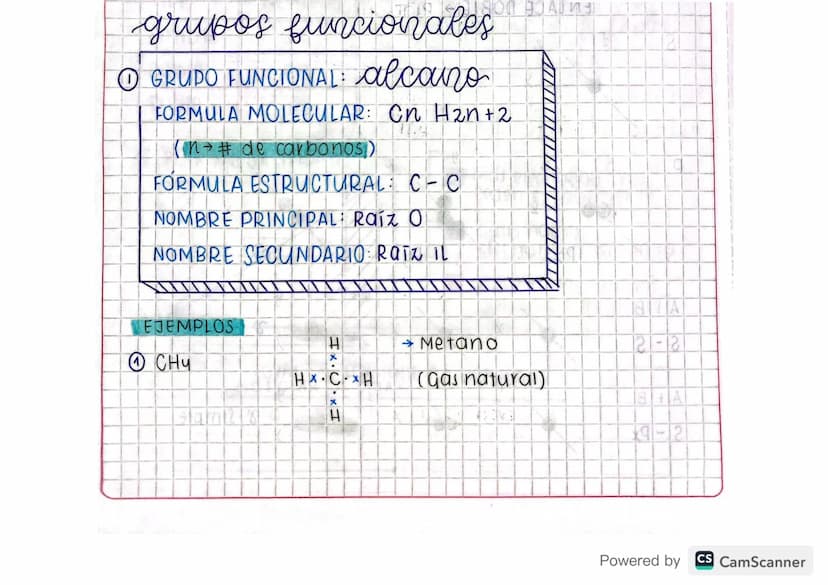 grupos funcionales
① GRUPO FUNCIONAL: alcano
FORMULA MOLECULAR: Cn H2n+2
(n→# de carbonos)
FÓRMULA ESTRUCTURAL: C - C
NOMBRE PRINCIPAL: Raíz O
NOMBRE SECUNDARIO: Raíz IL
EJEMPLOS
① CH4
H
x
·
H x · C · x H
·
x
H
→ Metano
(Gas natural)
Powered by CS CamScanner